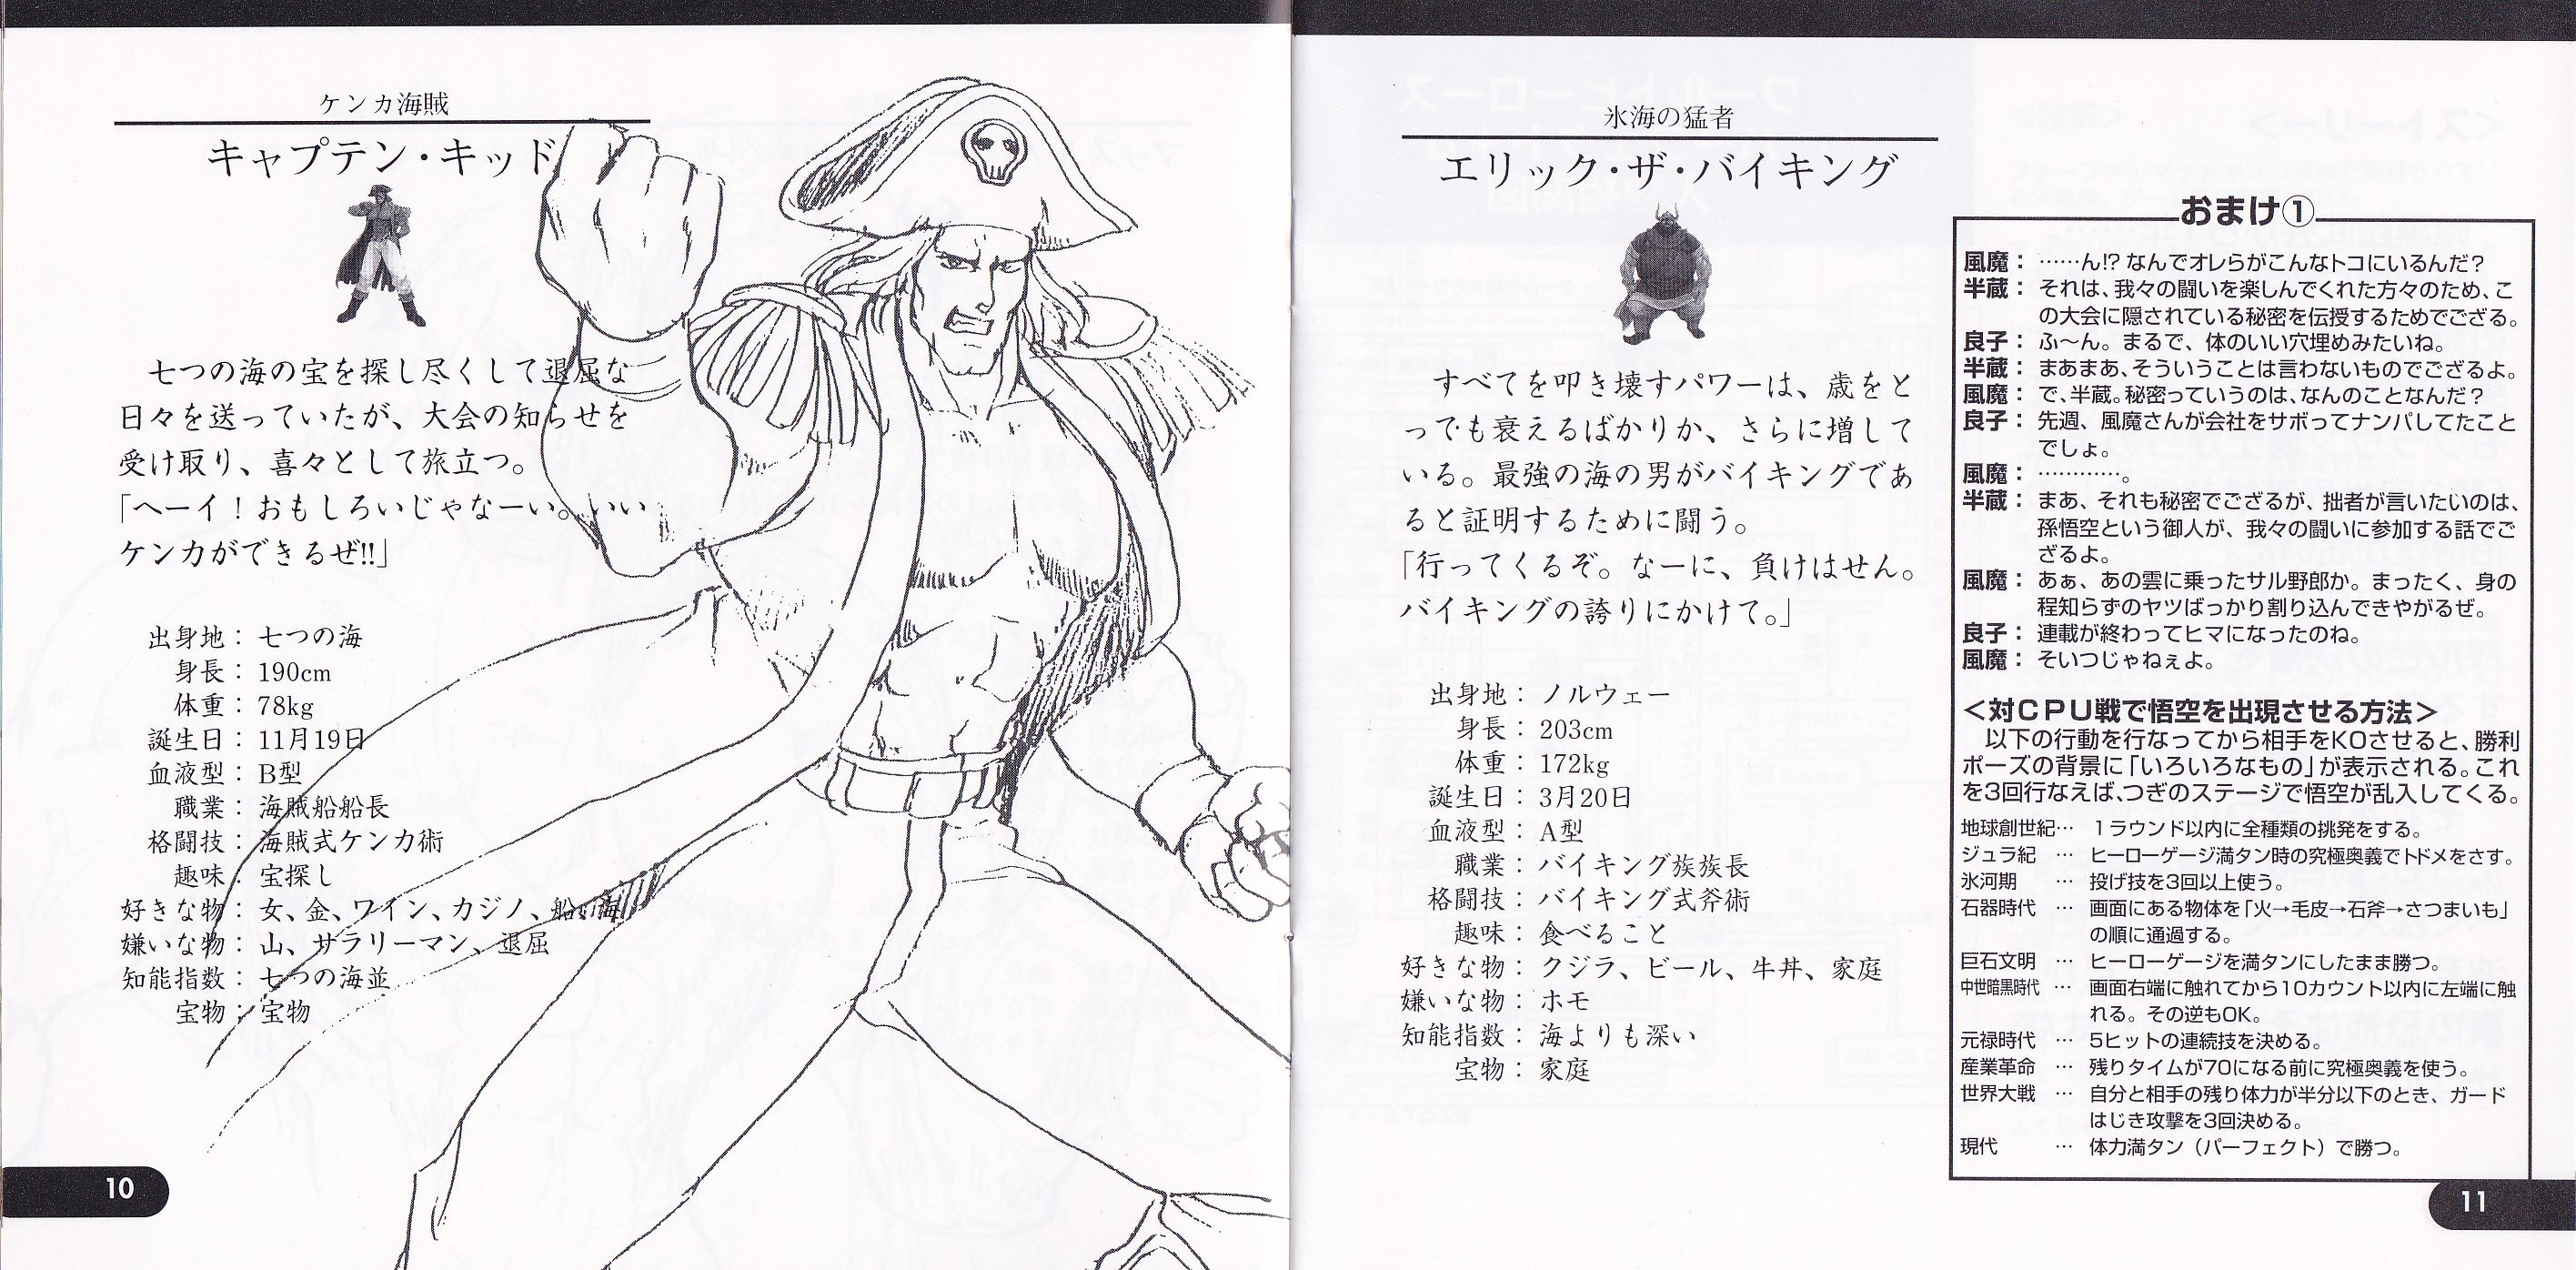 ケンカ海賊
キャプテン・キッド
七つの海の宝を探し尽くして退屈な
日々を送っていたが、大会の知らせを
受け取り、喜々として旅立つ。
「ヘーイ！おもしろいじゃなーい。いい
ケンカができるぜ!!」
出身地：七つの海
身長：190cm
体重：78kg
誕生日：11月19日
血液型：B型
職業：海賊船船長
格闘技：海賊式ケンカ術
趣味：宝探し
好きな物：女、金、ワイン、カジノ、船、海
嫌いな物：山、サラリーマン、退屈
知能指数：七つの海並
宝物：宝物
10
氷海の猛者
エリック・ザ・バイキング
すべてを叩き壊すパワーは、歳をと
っても衰えるばかりか、さらに増して
いる。最強の海の男がバイキングであ
ると証明するために闘う。
「行ってくるぞ。なーに、負けはせん。
バイキングの誇りにかけて。」
出身地：ノルウェー
身長：203cm
体重：172kg
誕生日：3月20日
血液型：A型
職業：バイキング族族長
格闘技：バイキング式斧術
趣味：食べること
好きな物：クジラ、ビール、牛丼、家庭
嫌いな物：ホモ
知能指数：海よりも深い
宝物：家庭
おまけ①
風魔：……ん!? なんでオレらがこんなトコにいるんだ？
半蔵：それは、我々の闘いを楽しんでくれた方々のため、こ
の大会に隠されている秘密を伝授するためでござる。
良子：ふ～ん。まるで、体のいい穴埋めみたいね。
半蔵：まあまあ、そういうことは言わないものでござるよ。
風魔：で、半蔵。秘密っていうのは、なんのことなんだ？
良子：先週、風魔さんが会社をサボってナンパしてたこと
でしょ。
風魔：…………。
半蔵：まあ、それも秘密でござるが、拙者が言いたいのは、
孫悟空という御人が、我々の闘いに参加する話でご
ざるよ。
風魔：あぁ、あの雲に乗ったサル野郎か。まったく、身の
程知らずのヤツばっかり割り込んできやがるぜ。
良子：連載が終わってヒマになったのね。
風魔：そいつじゃねぇよ。
＜対CPU戦で悟空を出現させる方法＞
以下の行動を行なってから相手をKOさせると、勝利
ポーズの背景に「いろいろなもの」が表示される。これ
を3回行なえば、つぎのステージで悟空が乱入してくる。
地球創世紀… 1ラウンド以内に全種類の挑発をする。
ジュラ紀 … ヒーローゲージ満タン時の究極奥義でトドメをさす。
氷河期 … 投げ技を3回以上使う。
石器時代 … 画面にある物体を「火→毛皮→石斧→さつまいも」
の順に通過する。
巨石文明 … ヒーローゲージを満タンにしたまま勝つ。
中世暗黒時代 … 画面右端に触れてから10カウント以内に左端に触
れる。その逆もOK。
元禄時代 … 5ヒットの連続技を決める。
産業革命 … 残りタイムが70になる前に究極奥義を使う。
世界大戦 … 自分と相手の残り体力が半分以下のとき、ガード
はじき攻撃を3回決める。
現代 … 体力満タン（パーフェクト）で勝つ。
11